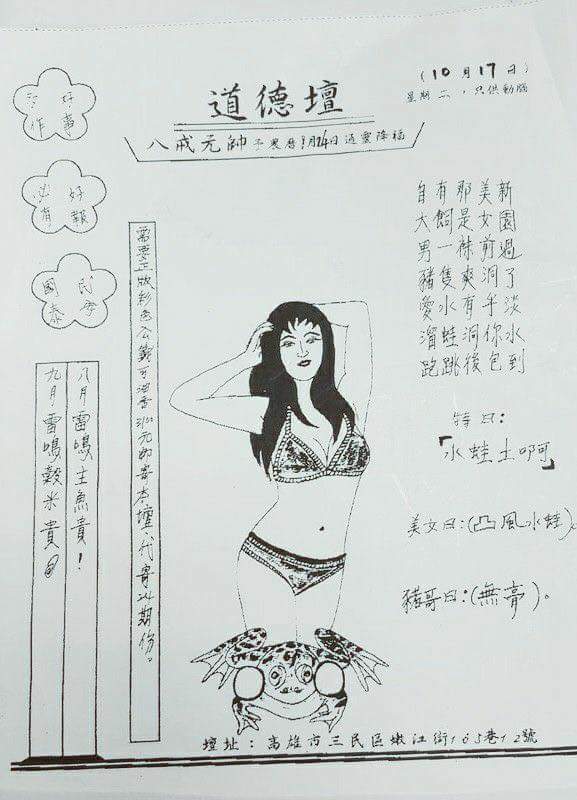 (10月17日)
星期二,只供動腦
道德壇
八戒元帥 于農曆 月24日 靈降福
好事 作
好報必有
民安國泰
新園過了淡水到
美女剪洞乎你包
那是 爽有洞後
有飼一隻水蛙跳
自大男豬愛溜跑
特曰:
「水蛙土啊」
美女曰:(凸風水蛙)。
豬哥曰:(無膏)。
需要正版彩色公籤可油香 元郵寄本壇、代寄24期份。
八月雷鳴主魚貴!
九月雷鳴穀米貴
壇址:高雄市三民區嫩江街165巷12號